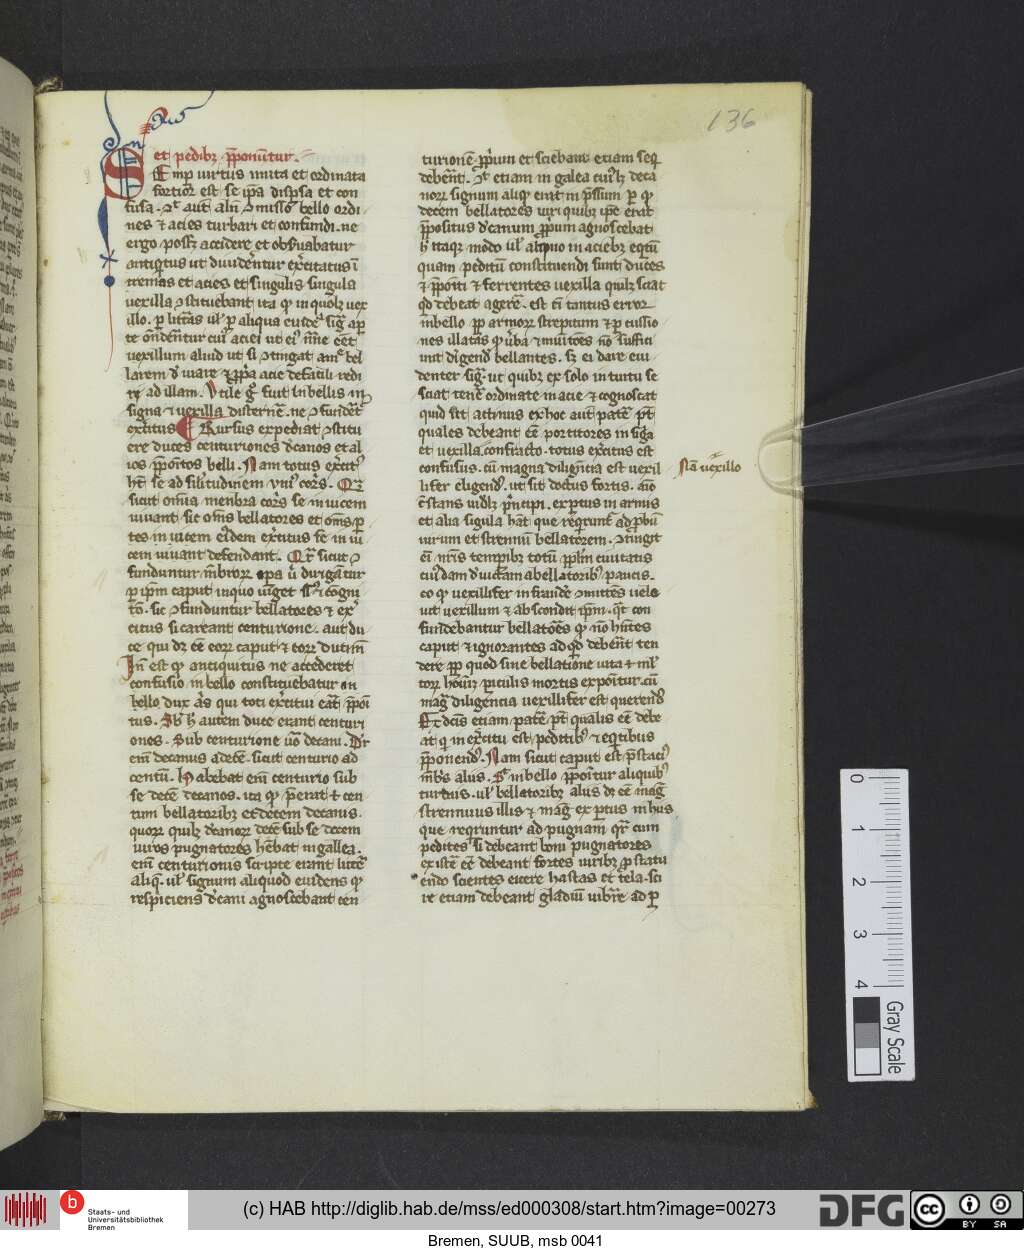 136
et pedibꝫ p̄ponūtur.
Semp uirtus unita et ordinata
fortior est se ip̄a disp̄sa et con
fusa. ꝯt̄ aut̄ aln̄ ꝯmisso bello ordi
nes ⁊ acies turbari et confundi. ne
ergo possꝫ accidere et obẜuabatur
antiq̇tus ut diuidērentur ex̄citatus ī
turmas et acies et singulis singula
uexilla ꝯstituebant ita ꝙ in quolꝫ uex
illo. ꝑ litt̄as ul̓ ꝑ aliqua euidē sig̓ ap̄
te ōndēntur cui̓ aciei ut ei̓ n̄rie eēt
uexillum aliud ut si ꝯtingat am̓ bel
larem
re ad illam. Vtile g̓ fuit in bellis in
signa ⁊ uexilla distern̄e. ne ꝯfundēt̓
exc̄itus Rursus expediat ꝯstitu
ere duces centuriones dc̄anos et al
ios p̄pōitos belli. Nam totus exc̄it̓
ht̄ se ad sil̓itudinem vni̓ corp̄s. Qꝛ
sicut omīa menbra corp̄s se inuicem
iuuant sic om̄s bellatores et om̄s ꝑ
tes inuicem ei̓dem exc̄itus se in ui
cem iuuant defendant. Qꝛ̄ sicut ꝯ
funduntur mēbroꝝ opa ꝯ̄ dirigātur
ꝑ ip̄m caput in quo uiget s̄s̓ ⁊ cogni
tō. sic ꝯfunduntur bellatores ⁊ ex̓
citus si careant centurione. aut du
ce qui dꝫ ēē eoꝝ caput ⁊ eoꝝ dux
Jn̄ est ꝙ antiquitus ne accederet
confusio in bello constituebatur in
bello dux a̓s qui toti exc̄itui eāt p̄poi
tus. Sb̓ h̓ autem duce erant centuri
ones. Sub centurione ūo decani. Dr̄
eīm decanus a decē. sicut centurio ad
centū. Habebat eīm centurio sub
se decē decanos. ita ꝙ p̄erat ⁊ cen
tum bellatoribꝫ et decem decanis.
quoꝝ qul̓ꝫ dc̄anoꝝ decē sub se decem
uiros pugnatores hēbat in gallea.
eīm centurionis scripte erant litt̄e
aliq̄. ul̓ signum aliquod euidens ꝙ
respiciens dc̄ani agnoscebant cen
turionē p̄pium et sciebant etiam seq̄
debēnt. ꝯt̄ etiam in galea cui̓lꝫ deca
noꝝ signum aliqḍ erat in p̄ssum ꝑ ꝙ
decem bellatores uiri quibꝫ ip̄e erat
p̄positus dc̄anum p̄pium agnoscebāt
h̓ itaqꝫ modo ul̓ aliquo in aciebꝫ eq̇tū
quam peditū constituendi sunt duces
⁊ p̄poniti ⁊ ferrentes uexilla qui̓lꝫ sciat
qḍ debeat agerē. est eī tantus error
in bello ꝓp̄ armoꝝ strepitum ⁊ ꝑcussio
nes illatas ꝙ ūba ⁊ moītiōes nō suffici
unt diꝛigend̓ bellantes. sꝫ eī dare eui
denter sig̓. ut quibꝫ ex solo intuitu se
sciat tenē ordinate in acie ⁊ cognoscat
quid sit acturus ex hoc aut̄ patē pt̄
quales debeant ēē portitores insig̓a
et vexilla. confracto. totus exc̄itus est
confusus. cū magna diligencia est uexil
lifer eligend̓. ut sit doctus fortis. aīo
ꝯ̄stans uidlꝫ p̄ncipi. exp̄tus in armis
et alia sīgula hāt que reqrunt̄ ad ꝓbū
uirum et strenuū bellatorem. ꝯtingit
eī n̄ris temporibꝫ totū pp̄lm̄ ciuitatis
cui̓dam
eo ꝙ uexillifer in fraude ꝯmittēs uelo
uit vexillum ⁊ abscondit ip̄m. qꝛ con
fundebantur bellatōes ꝙ nō hn̄tes
caput ⁊ ignorantes ad qḍ debēnt ten
dere ꝓp̄ quod sine bellatione uita ⁊ ml̓
toꝝ hoīuꝫ piculis mortis exponītur. cū
mag̓ diligēncia uexillifer est querend̓
Ex dc̄is etiam patē pt̄ qualis ēē debe
at q̇ in exc̄itu est peditibꝫ ⁊ eq̇tibus
p̄ponend̓. Nam sicut caput est p̄stāci̓
mb̄s aliis. S̓ in bello p̄poītur aliquibꝫ
turmis. ul̓ bellatoribꝫ aliis dꝫ ēē mag̓
strennuus illis ⁊ mag̓ exꝑtus in hiis
que reqruntur ad pugnam qꝛ̄ cum
pedites si debeant boni pugnatores
existē ēē debeant fortes uiribꝫ ꝓ statu
endo scientes eicere hastas et tela. sci
re etiam debeant gladiū uibrāe ad ꝑ
Nā uexillo
0
1
2
3
4
Gray Scale
b
Staats- und
Universitätsbibliothek
Bremen
(c) HAB http://diglib.hab.de/mss/ed000308/start.htm?image=00273
DFG
cc
BY SA
Bremen, SUUB, msb 0041